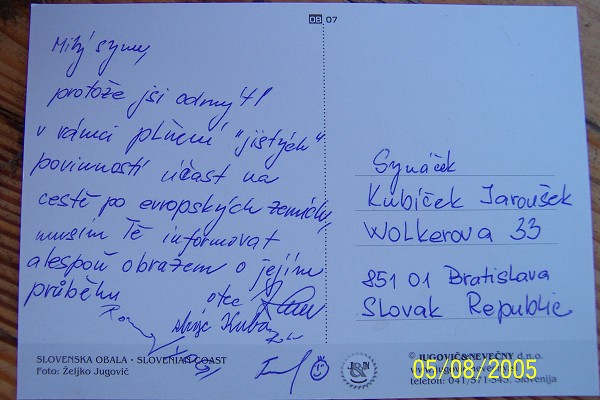 08 07
Milý synu,
protože jsi odmýtl
v rámci plnění "jistých"
povinností účast na
cestě po evropských zemích,
musím Tě informovat
alespoň obrazem o jejím
průběhu
otec
strýc Kuba
Synáček
Kubíček Jaroušek
Wolkerova 33
851 01 Bratislava
Slovak Republic
SLOVENSKA OBALA • SLOVENIAN COAST
Foto: Željko Jugovič
© JUGOVIČ&NEVEČNY d.n.o.
telefon: 041/571-545, Slovenija
05/08/2005